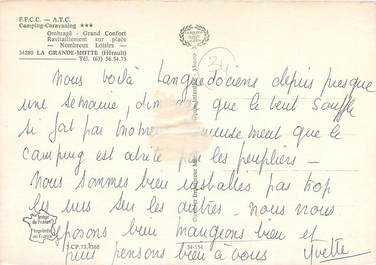 F.F.C.C. - A.T.C.
Camping-Caravaning ★★★
Ombragé - Grand Confort
Ravitaillement sur place
— Nombreux Loisirs —
34280 LA GRANDE-MOTTE (Hérault)
Tél. (67) 56.54.75
34
Nous voilà Languedociens depuis presque
une semaine, que le vent souffle
si fait par moment que le
camping est abrité par les peupliers -
Nous sommes bien installés pas trop
les uns sur les autres. nous nous
reposons bien mangeons bien et
puis pensons bien à vous Yvette
Image de France
Imprimée en France
S.CP.73.4368
34-154